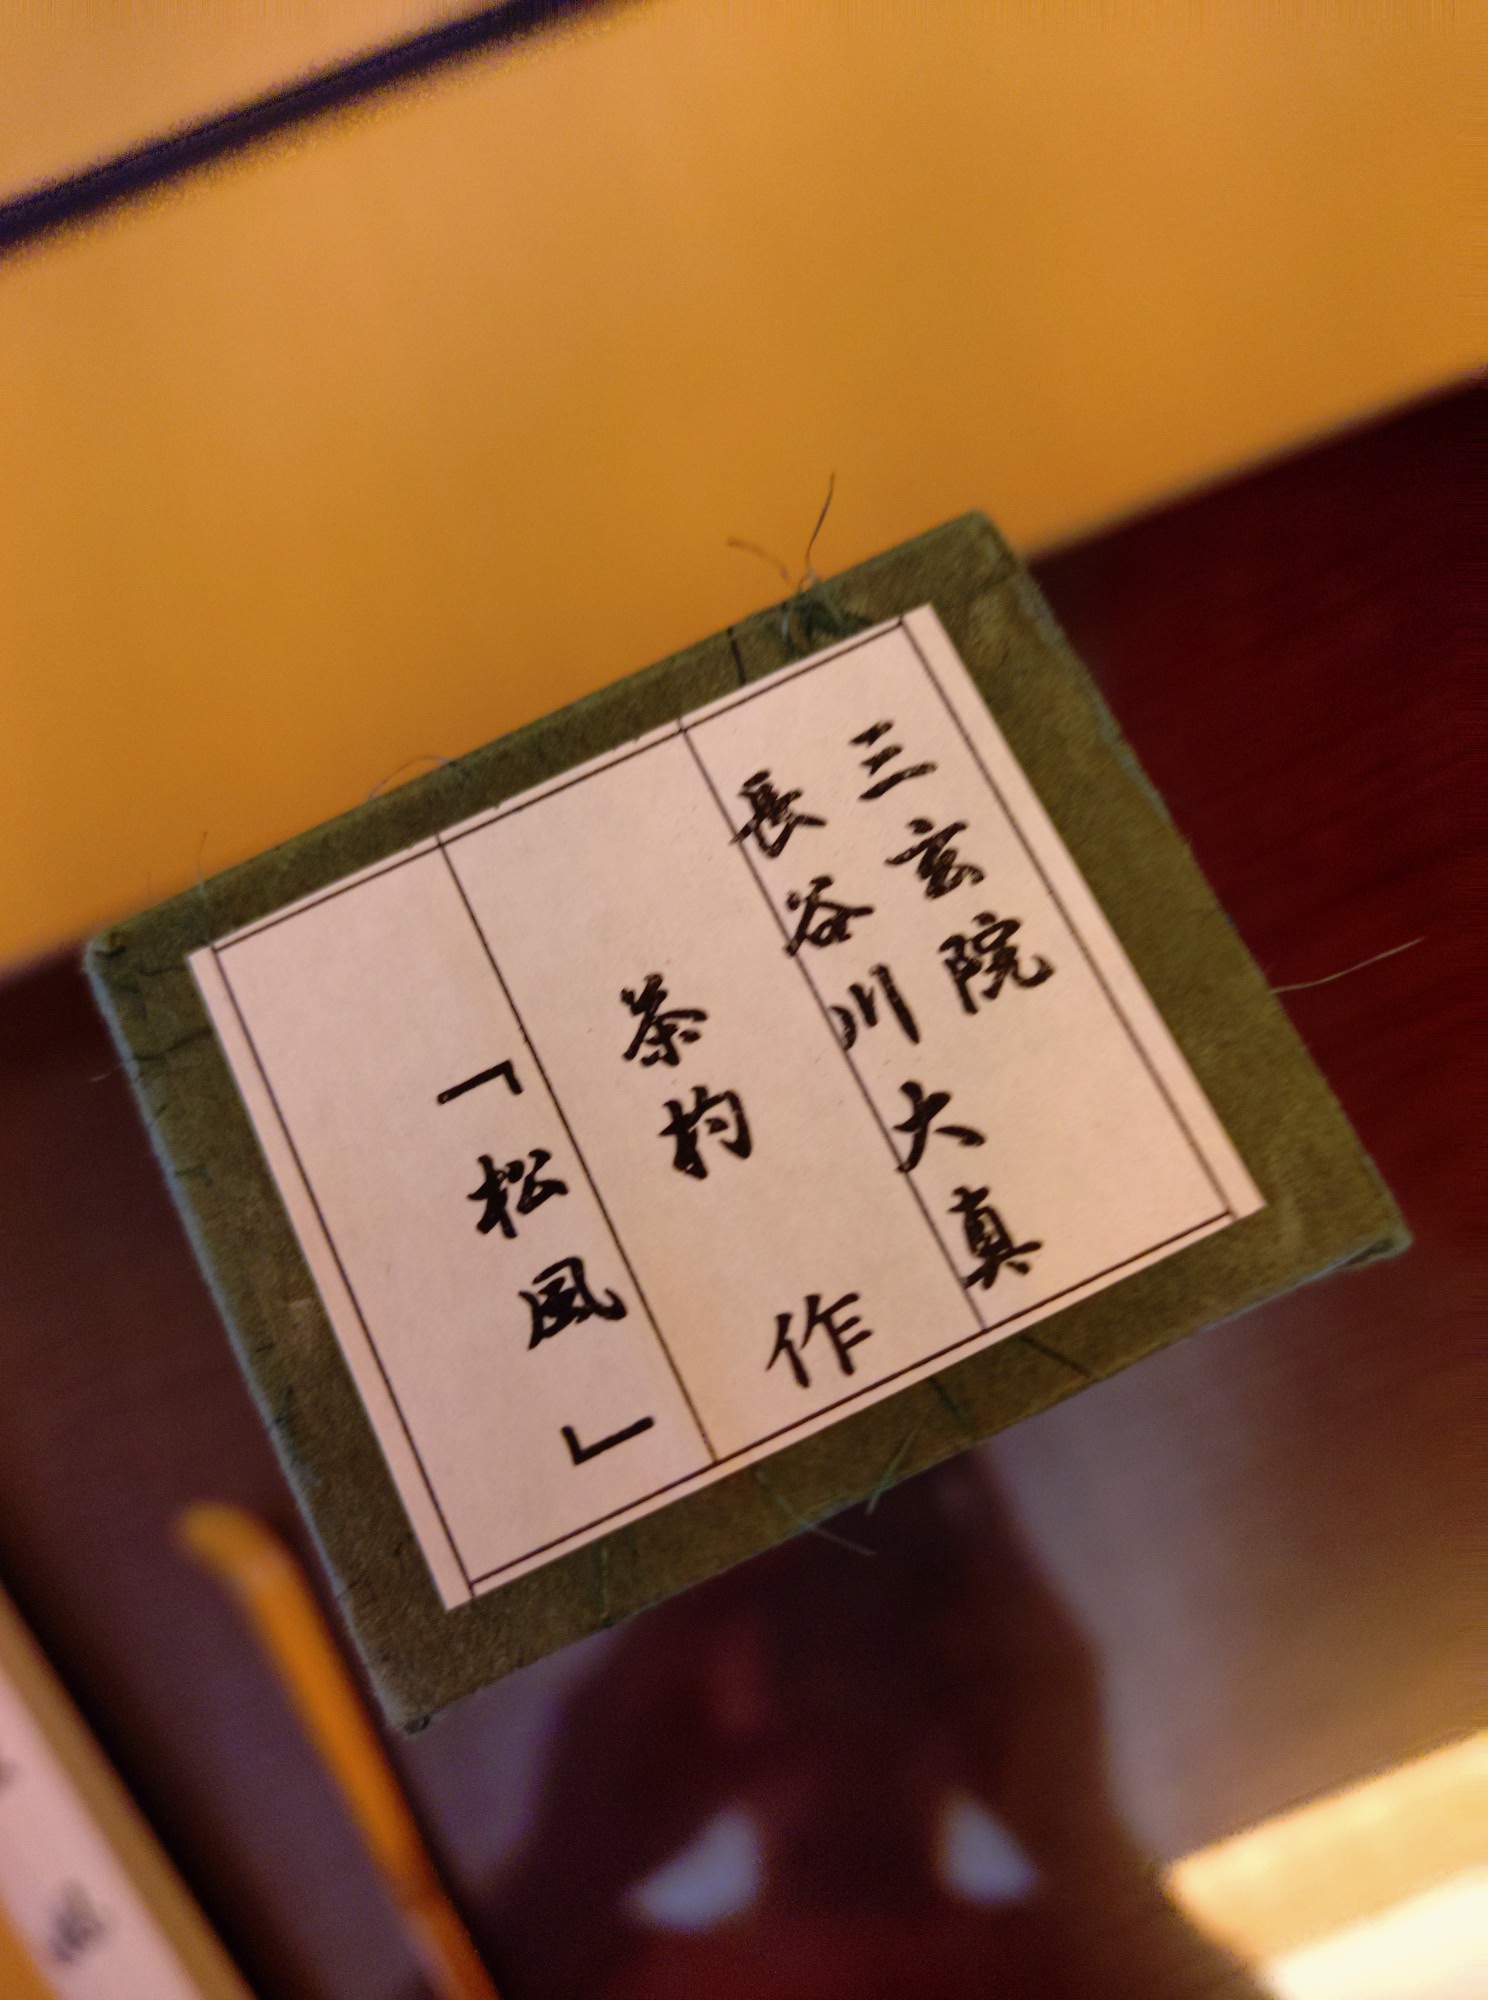 三玄院
長谷川大真
茶杓 作
「松風」